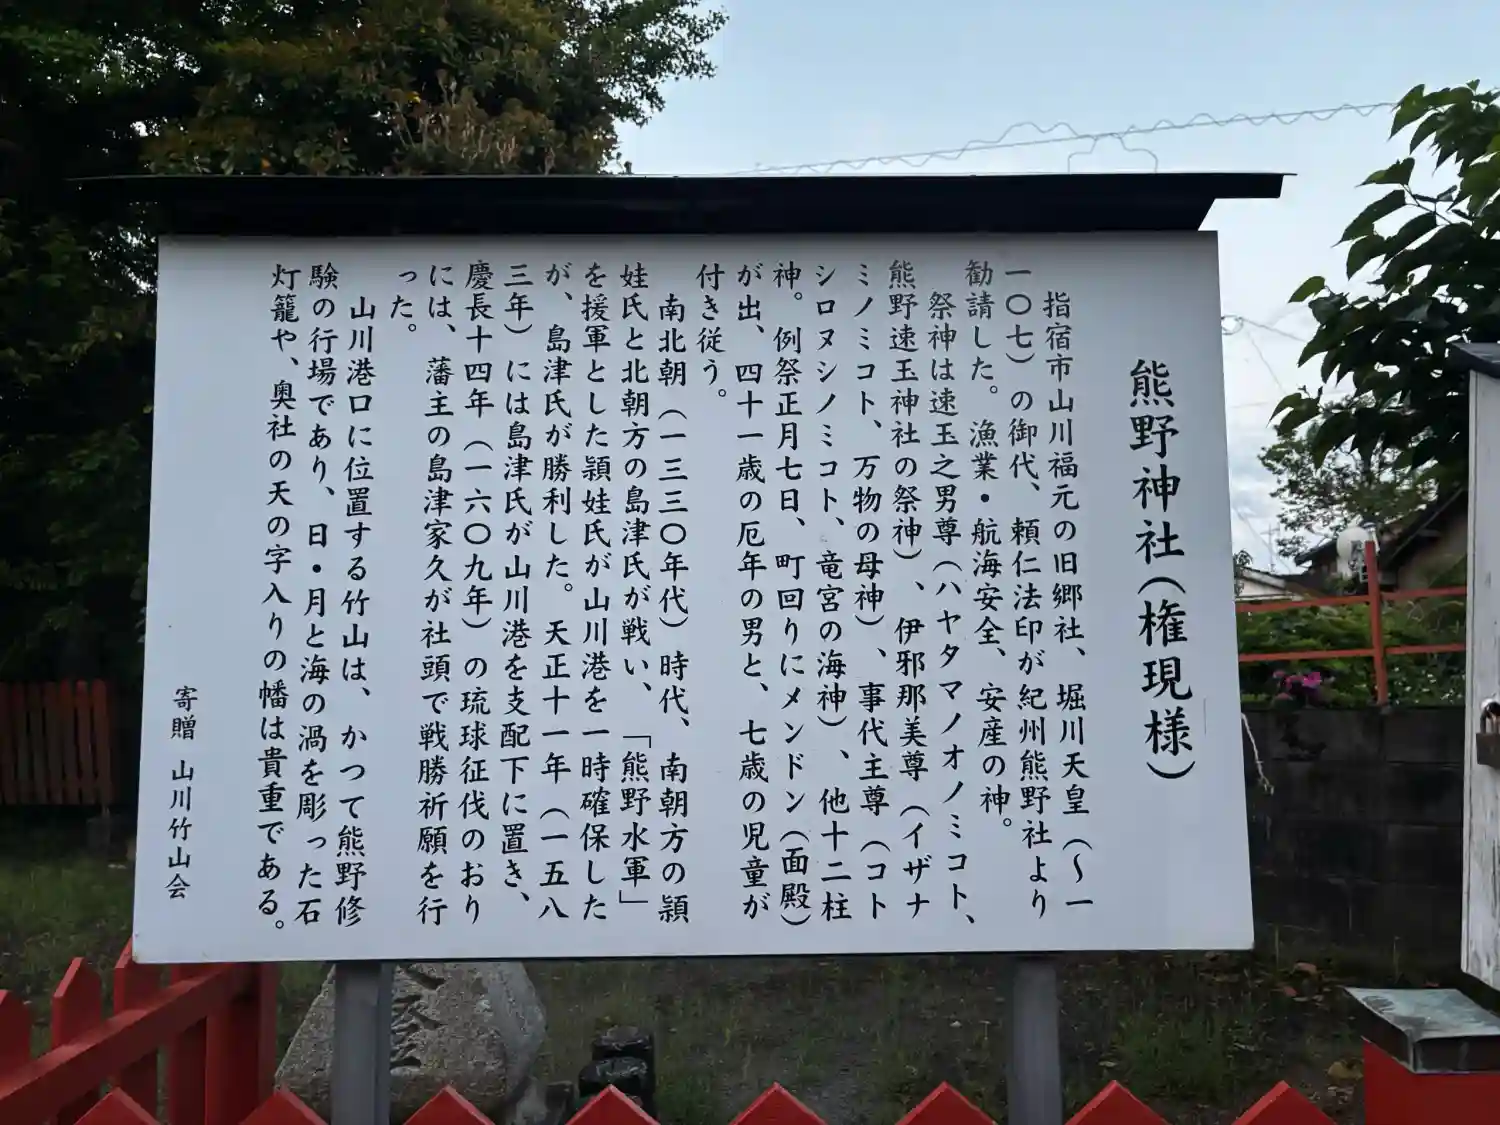 熊野神社(権現様)
指宿市山川福元の旧郷社、堀川天皇(〜一
一〇七)の御代、頼仁法印が紀州熊野社より
勧請した。漁業・航海安全、安産の神。
祭神は速玉之男尊(ハヤタマノオノミコト、
熊野速玉神社の祭神)、伊邪那美尊(イザナ
ミノミコト、万物の母神)、事代主尊(コト
シロヌシノミコト、竜宮の海神)、他十二柱
神。例祭正月七日、町回りにメンドン(面殿)
が出、四十一歳の厄年の男と、七歳の児童が
付き従う。
南北朝(一三三〇年代)時代、南朝方の頴
娃氏と北朝方の島津氏が戦い、「熊野水軍」
を援軍とした頴娃氏が山川港を一時確保した
が、島津氏が勝利した。天正十一年(一五八
三年)には島津氏が山川港を支配下に置き、
慶長十四年(一六〇九年)の琉球征伐のおり
には、藩主の島津家久が社頭で戦勝祈願を行
った。
山川港口に位置する竹山は、かつて熊野修
験の行場であり、日・月と海の渦を彫った石
灯籠や、奥社の天の字入りの幡は貴重である。
寄贈 山川竹山会